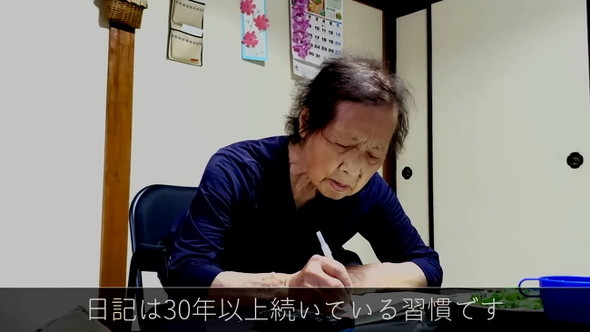 日記は30年以上続いている習慣です